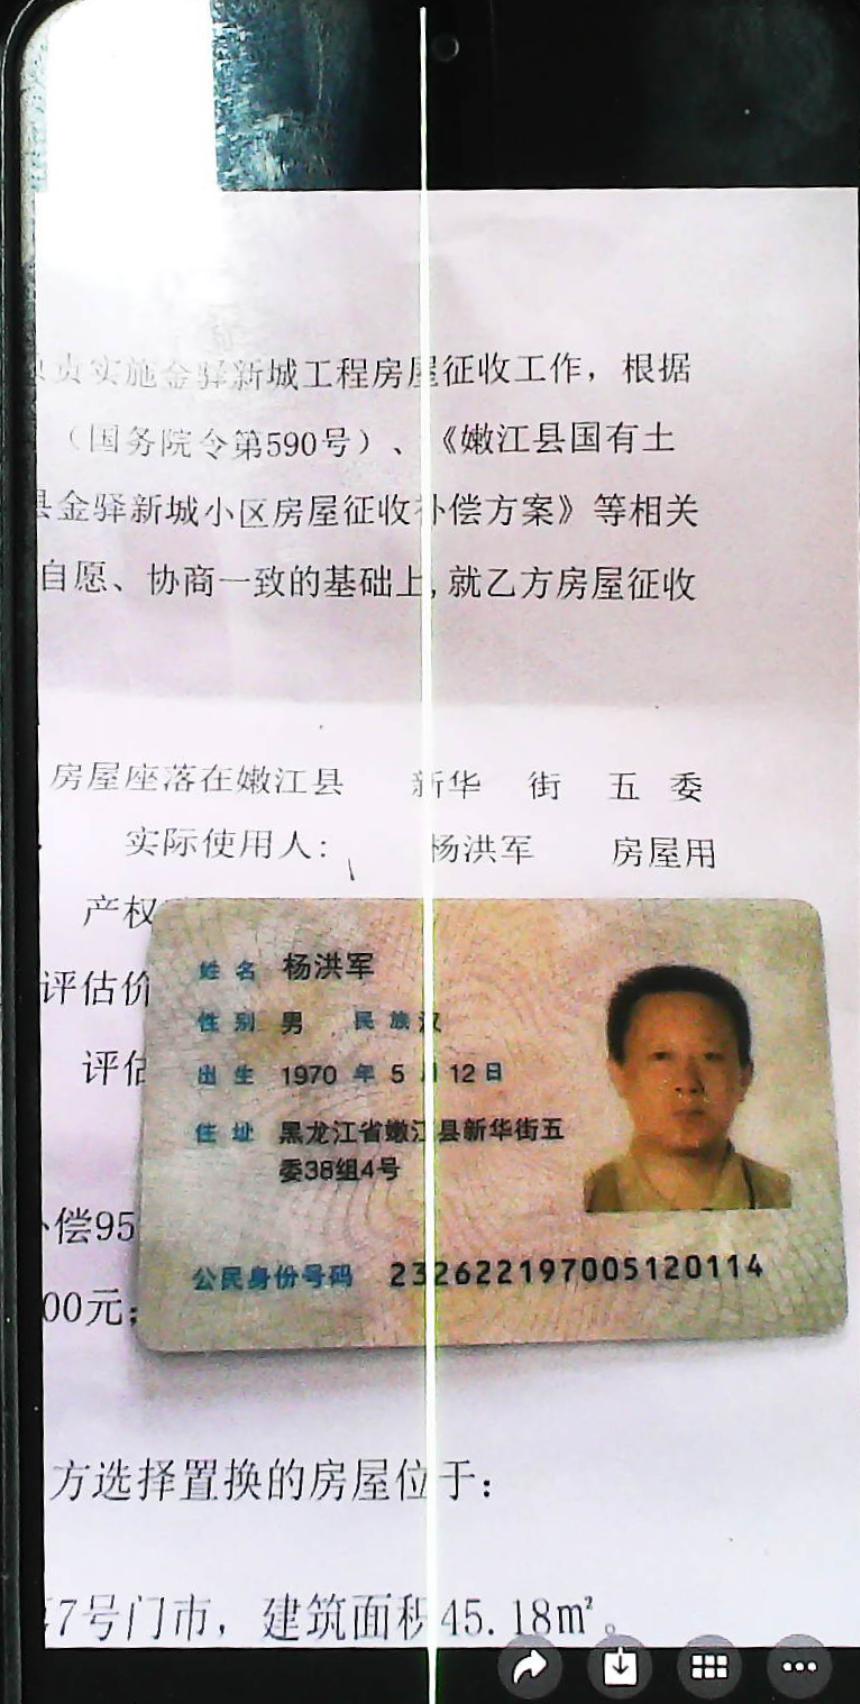 责实施金驿新城工程房屋征收工作，根据
（国务院令第590号）、《嫩江县国有土
县金驿新城小区房屋征收补偿方案》等相关
自愿、协商一致的基础上,就乙方房屋征收
房屋座落在嫩江县 新华 街 五 委
实际使用人: 杨洪军 房屋用
产权
评估价
评估
偿95
00元;
姓名 杨洪军
性别 男 民族 汉
出生 1970 年 5 月 12 日
住址 黑龙江省嫩江县新华街五
委38组4号
公民身份号码 232622197005120114
方选择置换的房屋位于:
7号门市，建筑面积45.18m²。